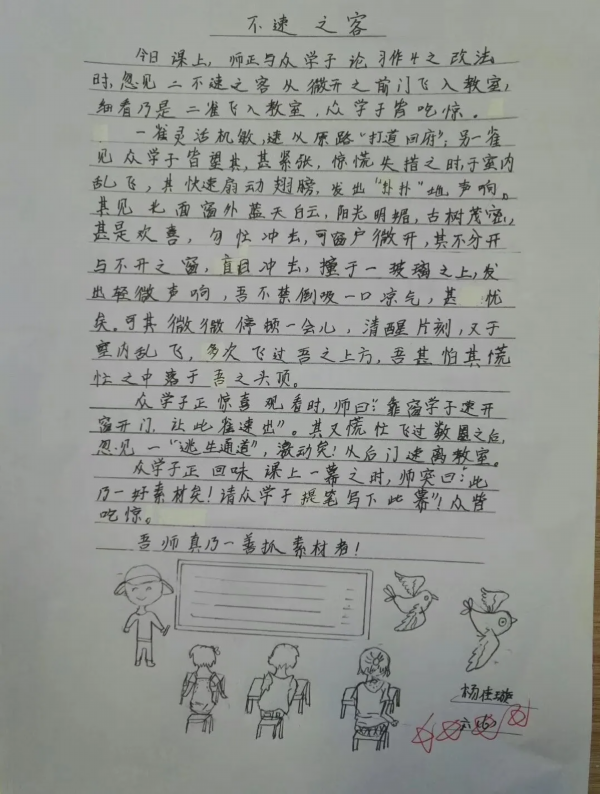 不速之客
今日课上，师正与众学子论习作4之改法
时，忽见二不速之客从微开之前门飞入教室，
细看乃是二雀飞入教室，众学子皆吃惊。
一雀灵活机敏，速从原路“打道回府”；另一雀
见众学子皆望其，甚紧张，惊慌失措之时，于室内
乱飞，其快速扇动翅膀，发出“扑扑”地声响。
其见北面窗外蓝天白云，阳光明媚，古树茂密，
甚是欢喜，匆忙冲出，可窗户微开，其不分开
与不开之窗，盲目冲出，撞于一玻璃之上，发
出轻微声响，吾不禁倒吸一口凉气，甚忧
矣。可其微微停顿一会儿，清醒片刻，又于
室内乱飞，多次飞过吾之上方，吾甚怕其慌
忙之中落于吾之头顶。
众学子正惊喜观看时，师曰：“靠窗学子速开
窗开门，让此雀速出”。其又慌忙飞过数圈之后，
忽见一“逃生通道”，激动矣！从后门速离教室。
众学子正回味课上一幕之时，师突曰：“此
乃一好素材矣！请众学子提笔写下此幕”！众皆
吃惊。
吾师真乃一善抓素材者！
杨佳璇
六（6）